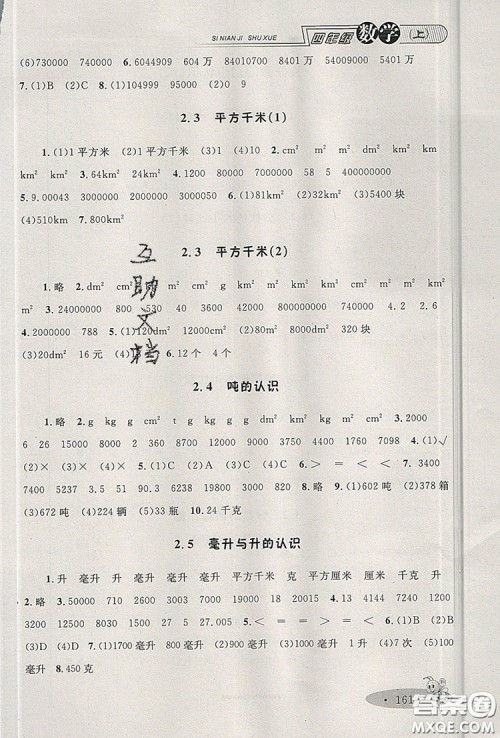 SI NIAN JI SHU XUE 四年级 数学 (上)
(6)730000 740000 6.6044909 604万 84010700 8401万 54009000 5401万
7.(1)B (2)C 8.(1)9944441 (2)1444499
2.3 平方千米(1)
1.(1)1平方米 (2)1平方千米 (3)1 (4)10 2.cm² m² dm² km² m² km km
km² km² 3.64km² 24km² 4.120000 1000000 58 5 7000000 4000000
5.9.00043 3000000 2000000 3000050 6.(1)81km² (2)32km² (3)5400块
(4)510km 7.800km²
2.3 平方千米(2)
1.略 2.dm² cm² cm² m² cm² g kg km² m² cm² m² m² km² km²
m² 3.24000000 800 530 40 3600 34000 5000000 700000 4.2 2.6
4.2000000 788 5.(1)120dm² 12000cm² (2)80dm² 8000cm² (2)180dm² 320块
(3)20dm² 16元 (4)18 6.12个 4个
互助文档
2.4 吨的认识
1.略 2.g kg g cm² t g kg g kg g cm² dm² m² 3.2000
6 26 15000 8000 2 3690 8200 9007 1350 4500 4320 1063 7098 4.(1)√
(2)× (3)× (4)× 5.(1)D (2)A (3)C (4)C 6.> = < < 7.3400
7400 5237 3.5 51 90000 154000 8.略 9.(1)602吨 (2)378箱
(3)672吨 (4)224辆 (5)33瓶 10.24千克
2.5 毫升与升的认识
1.升 毫升 升 升 毫升 毫升 毫升 平方千米 克 平方厘米 厘米 千克 升
2.略 3.50000 810 8000 200 17000 1900 18 20015 4.13 4200 1200
3200 12500 600 10000 8000 340000 9000 5.< < > = > < 6.(1)C
(2)B (3)D (4)D 7.(1)1700毫升 800毫升 (2)900毫升 (3)毫升 1升 (4)7次 (5)100
毫升 8.450克
161
答案圈
MXQE.COM